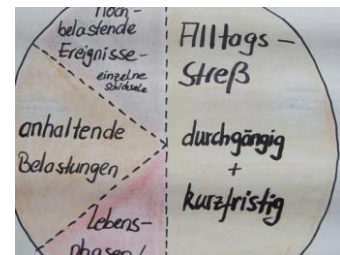 hoch-
belastende
Ereignisse-
einzelne
Schicksale
anhaltende
Belastungen
Lebens-
phasen/
Alltags-
streß
durchgängig
+
kurzfristig